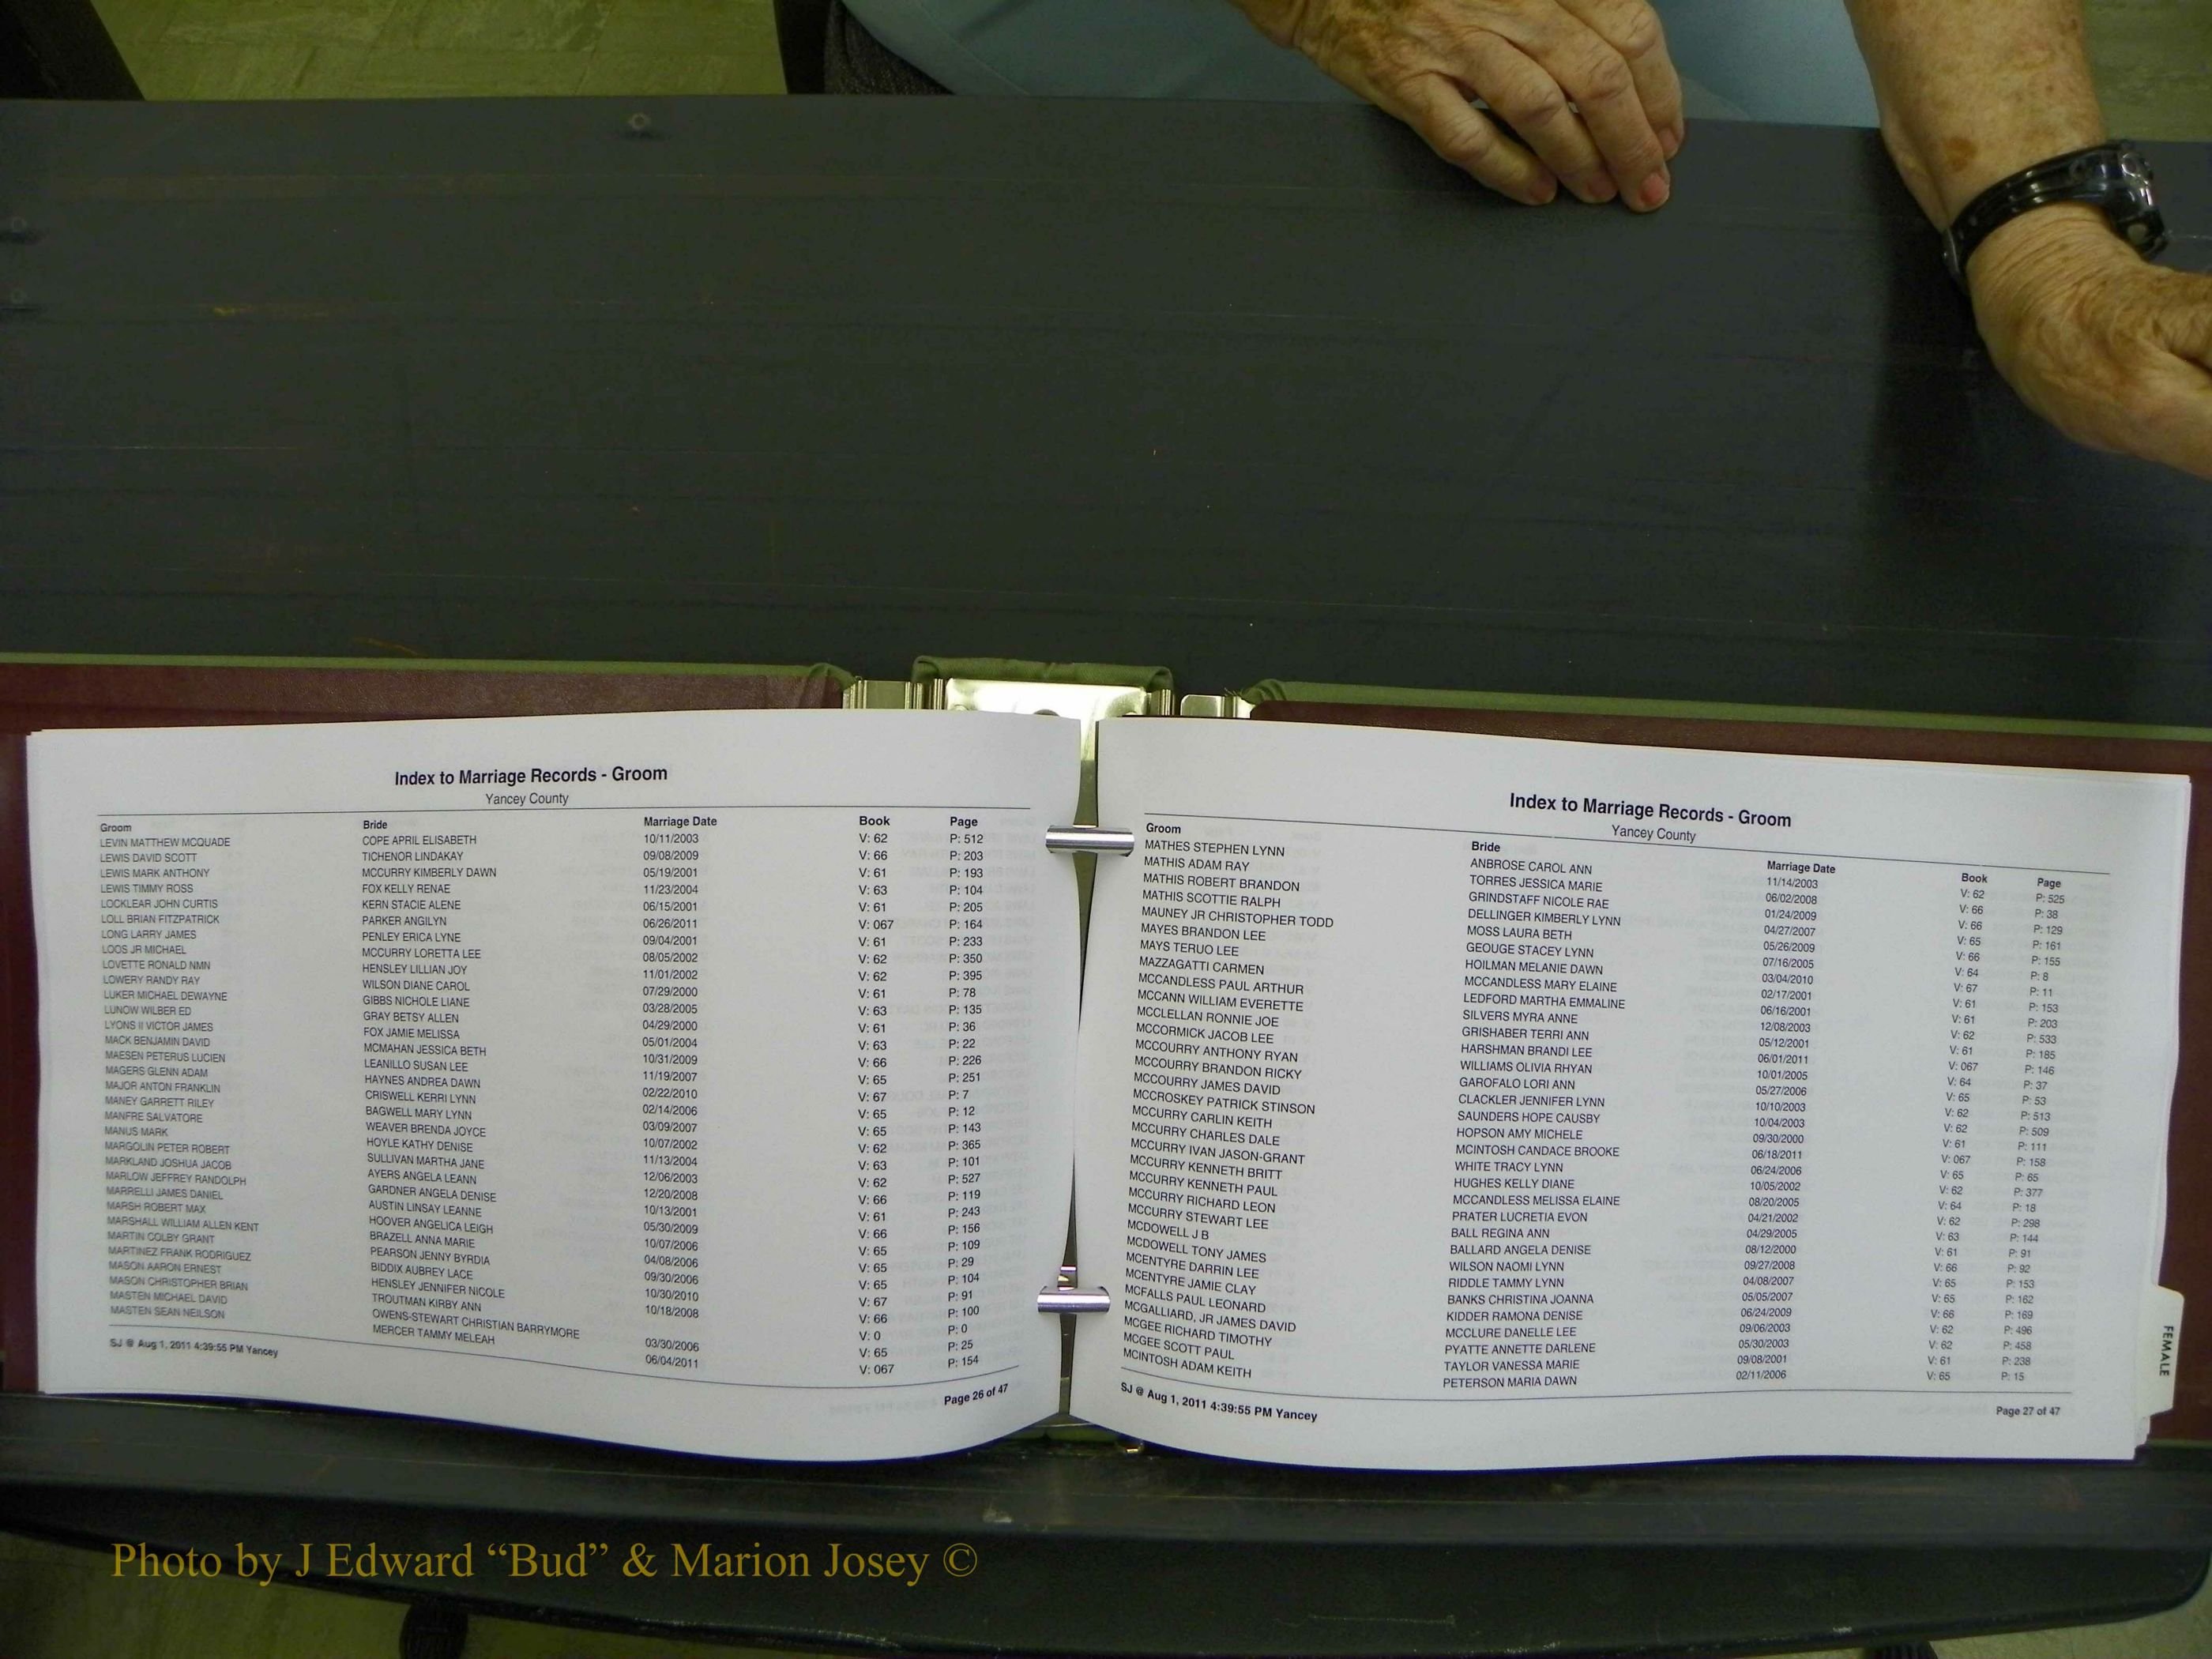 Index to Marriage Records - Groom
Yancey County
Groom Bride Marriage Date Book Page
LEVIN MATTHEW MCQUADE COPE APRIL ELISABETH 10/11/2003 V: 62 P: 512
LEWIS DAVID SCOTT TICHENOR LINDAKAY 09/08/2009 V: 66 P: 203
LEWIS MARK ANTHONY MCCURRY KIMBERLY DAWN 05/19/2001 V: 61 P: 193
LEWIS TIMMY ROSS FOX KELLY RENAE 11/23/2004 V: 63 P: 104
LOCKLEAR JOHN CURTIS KERN STACIE ALENE 06/15/2001 V: 61 P: 205
LOLL BRIAN FITZPATRICK PARKER ANGILYN 06/26/2011 V: 067 P: 164
LONG LARRY JAMES PENLEY ERICA LYNE 09/04/2001 V: 61 P: 233
LOOS JR MICHAEL MCCURRY LORETTA LEE 08/05/2002 V: 62 P: 350
LOVETTE RONALD NMN HENSLEY LILLIAN JOY 11/01/2002 V: 62 P: 395
LOWERY RANDY RAY WILSON DIANE CAROL 07/29/2000 V: 61 P: 78
LUKER MICHAEL DEWAYNE GIBBS NICHOLE LIANE 03/28/2005 V: 63 P: 135
LUNOW WILBER ED GRAY BETSY ALLEN 04/29/2000 V: 61 P: 36
LYONS II VICTOR JAMES FOX JAMIE MELISSA 05/01/2004 V: 63 P: 22
MACK BENJAMIN DAVID MCMAHAN JESSICA BETH 10/31/2009 V: 66 P: 226
MAESEN PETERUS LUCIEN LEANILLO SUSAN LEE 11/19/2007 V: 65 P: 251
MAGERS GLENN ADAM HAYNES ANDREA DAWN 02/22/2010 V: 67 P: 7
MAJOR ANTON FRANKLIN CRISWELL KERRI LYNN 02/14/2006 V: 65 P: 12
MANEY GARRETT RILEY BAGWELL MARY LYNN 03/09/2007 V: 65 P: 143
MANFRE SALVATORE WEAVER BRENDA JOYCE 10/07/2002 V: 62 P: 365
MANUS MARK HOYLE KATHY DENISE 11/13/2004 V: 63 P: 101
MARGOLIN PETER ROBERT SULLIVAN MARTHA JANE 12/06/2003 V: 62 P: 527
MARKLAND JOSHUA JACOB AYERS ANGELA LEANN 12/20/2008 V: 66 P: 119
MARLOW JEFFREY RANDOLPH GARDNER ANGELA DENISE 10/13/2001 V: 61 P: 243
MARRELLI JAMES DANIEL AUSTIN LINSAY LEANNE 05/30/2009 V: 66 P: 156
MARSH ROBERT MAX HOOVER ANGELICA LEIGH 10/07/2006 V: 65 P: 109
MARSHALL WILLIAM ALLEN KENT BRAZELL ANNA MARIE 04/08/2006 V: 65 P: 29
MARTIN COLBY GRANT PEARSON JENNY BYRDIA 09/30/2006 V: 65 P: 104
MARTINEZ FRANK RODRIGUEZ BIDDIX AUBREY LACE 10/30/2010 V: 67 P: 91
MASON AARON ERNEST HENSLEY JENNIFER NICOLE 10/18/2008 V: 66 P: 100
MASON CHRISTOPHER BRIAN TROUTMAN KIRBY ANN V: 0 P: 0
MASTEN MICHAEL DAVID OWENS-STEWART CHRISTIAN BARRYMORE 03/30/2006 V: 65 P: 25
MASTEN SEAN NEILSON MERCER TAMMY MELEAH 06/04/2011 V: 067 P: 154
SJ @ Aug 1, 2011 4:39:55 PM Yancey Page 26 of 47
Index to Marriage Records - Groom
Yancey County
Groom Bride Marriage Date Book Page
MATHES STEPHEN LYNN ANBROSE CAROL ANN 11/14/2003 V: 62 P: 525
MATHIS ADAM RAY TORRES JESSICA MARIE 06/02/2008 V: 66 P: 38
MATHIS ROBERT BRANDON GRINDSTAFF NICOLE RAE 01/24/2009 V: 66 P: 129
MATHIS SCOTTIE RALPH DELLINGER KIMBERLY LYNN 04/27/2007 V: 65 P: 161
MAUNEY JR CHRISTOPHER TODD MOSS LAURA BETH 05/26/2009 V: 66 P: 155
MAYES BRANDON LEE GEOUGE STACEY LYNN 07/16/2005 V: 64 P: 8
MAYS TERUO LEE HOILMAN MELANIE DAWN 03/04/2010 V: 67 P: 11
MAZZAGATTI CARMEN MCCANDLESS MARY ELAINE 02/17/2001 V: 61 P: 153
MCCANDLESS PAUL ARTHUR LEDFORD MARTHA EMMALINE 06/16/2001 V: 61 P: 203
MCCANN WILLIAM EVERETTE SILVERS MYRA ANNE 12/08/2003 V: 62 P: 533
MCCLELLAN RONNIE JOE GRISHABER TERRI ANN 05/12/2001 V: 61 P: 185
MCCORMICK JACOB LEE HARSHMAN BRANDI LEE 06/01/2011 V: 067 P: 146
MCCOURRY ANTHONY RYAN WILLIAMS OLIVIA RHYAN 10/01/2005 V: 64 P: 37
MCCOURRY BRANDON RICKY GAROFALO LORI ANN 05/27/2006 V: 65 P: 53
MCCOURRY JAMES DAVID CLACKLER JENNIFER LYNN 10/10/2003 V: 62 P: 513
MCCROSKEY PATRICK STINSON SAUNDERS HOPE CAUSBY 10/04/2003 V: 62 P: 509
MCCURRY CARLIN KEITH HOPSON AMY MICHELE 09/30/2000 V: 61 P: 111
MCCURRY CHARLES DALE MCINTOSH CANDACE BROOKE 06/18/2011 V: 067 P: 158
MCCURRY IVAN JASON-GRANT WHITE TRACY LYNN 06/24/2006 V: 65 P: 65
MCCURRY KENNETH BRITT HUGHES KELLY DIANE 10/05/2002 V: 62 P: 377
MCCURRY KENNETH PAUL MCCANDLESS MELISSA ELAINE 08/20/2005 V: 64 P: 18
MCCURRY RICHARD LEON PRATER LUCRETIA EVON 04/21/2002 V: 62 P: 298
MCCURRY STEWART LEE BALL REGINA ANN 04/29/2005 V: 63 P: 144
MCDOWELL J B BALLARD ANGELA DENISE 08/12/2000 V: 61 P: 91
MCDOWELL TONY JAMES WILSON NAOMI LYNN 09/27/2008 V: 66 P: 92
MCENTYRE DARRIN LEE RIDDLE TAMMY LYNN 04/08/2007 V: 65 P: 153
MCENTYRE JAMIE CLAY BANKS CHRISTINA JOANNA 05/05/2007 V: 65 P: 162
MCFALLS PAUL LEONARD KIDDER RAMONA DENISE 06/24/2009 V: 66 P: 169
MCGALLIARD, JR JAMES DAVID MCCLURE DANELLE LEE 09/06/2003 V: 62 P: 496
MCGEE RICHARD TIMOTHY PYATTE ANNETTE DARLENE 05/30/2003 V: 62 P: 458
MCGEE SCOTT PAUL TAYLOR VANESSA MARIE 09/08/2001 V: 61 P: 238
MCINTOSH ADAM KEITH PETERSON MARIA DAWN 02/11/2006 V: 65 P: 15
SJ @ Aug 1, 2011 4:39:55 PM Yancey Page 27 of 47
FEMALE
Photo by J Edward “Bud” & Marion Josey ©